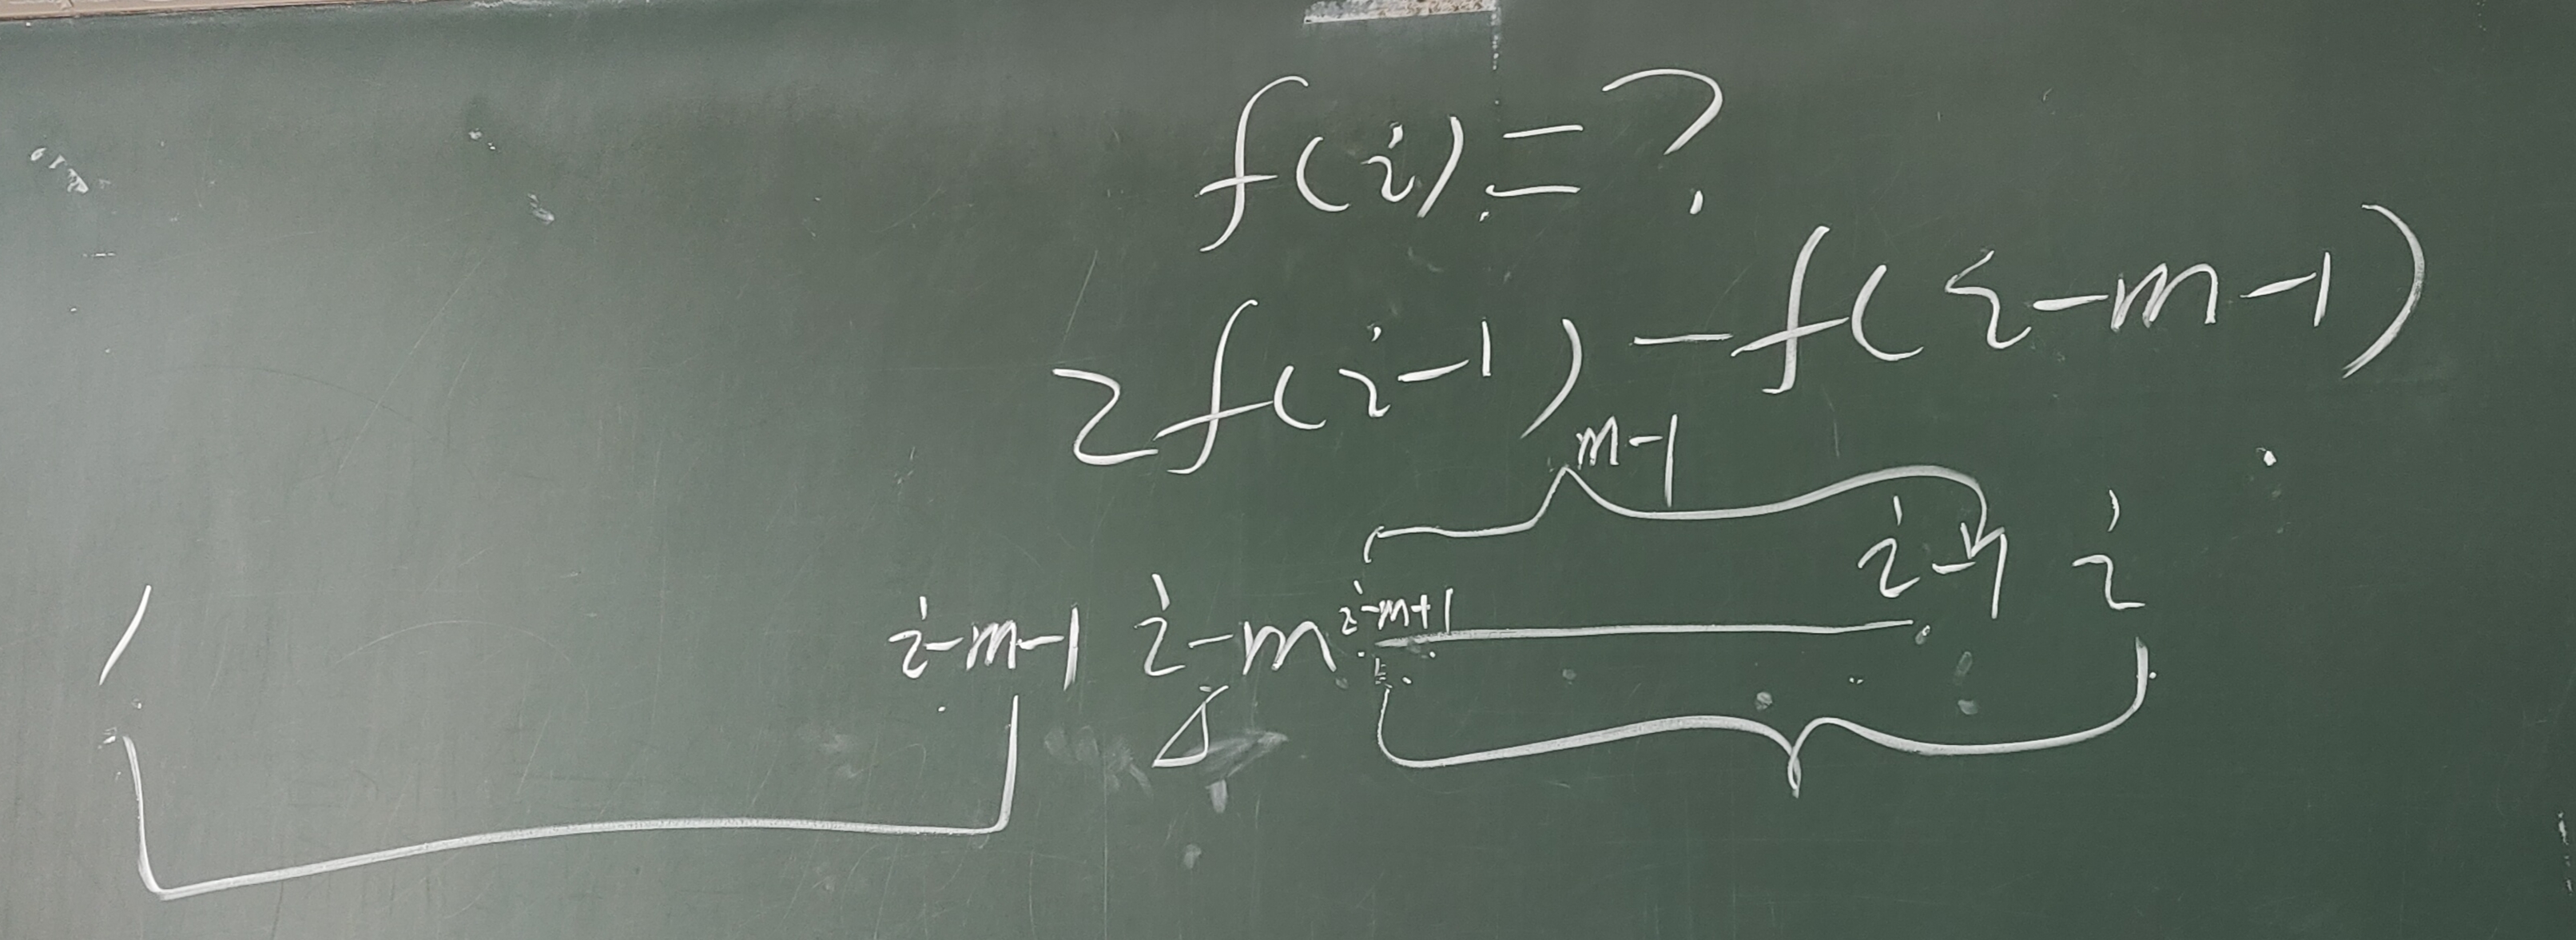 f(i)=?
2f(i-1)-f(i-m-1)
m-1
i-1 i
1 i-m-1 i-m i-m+1